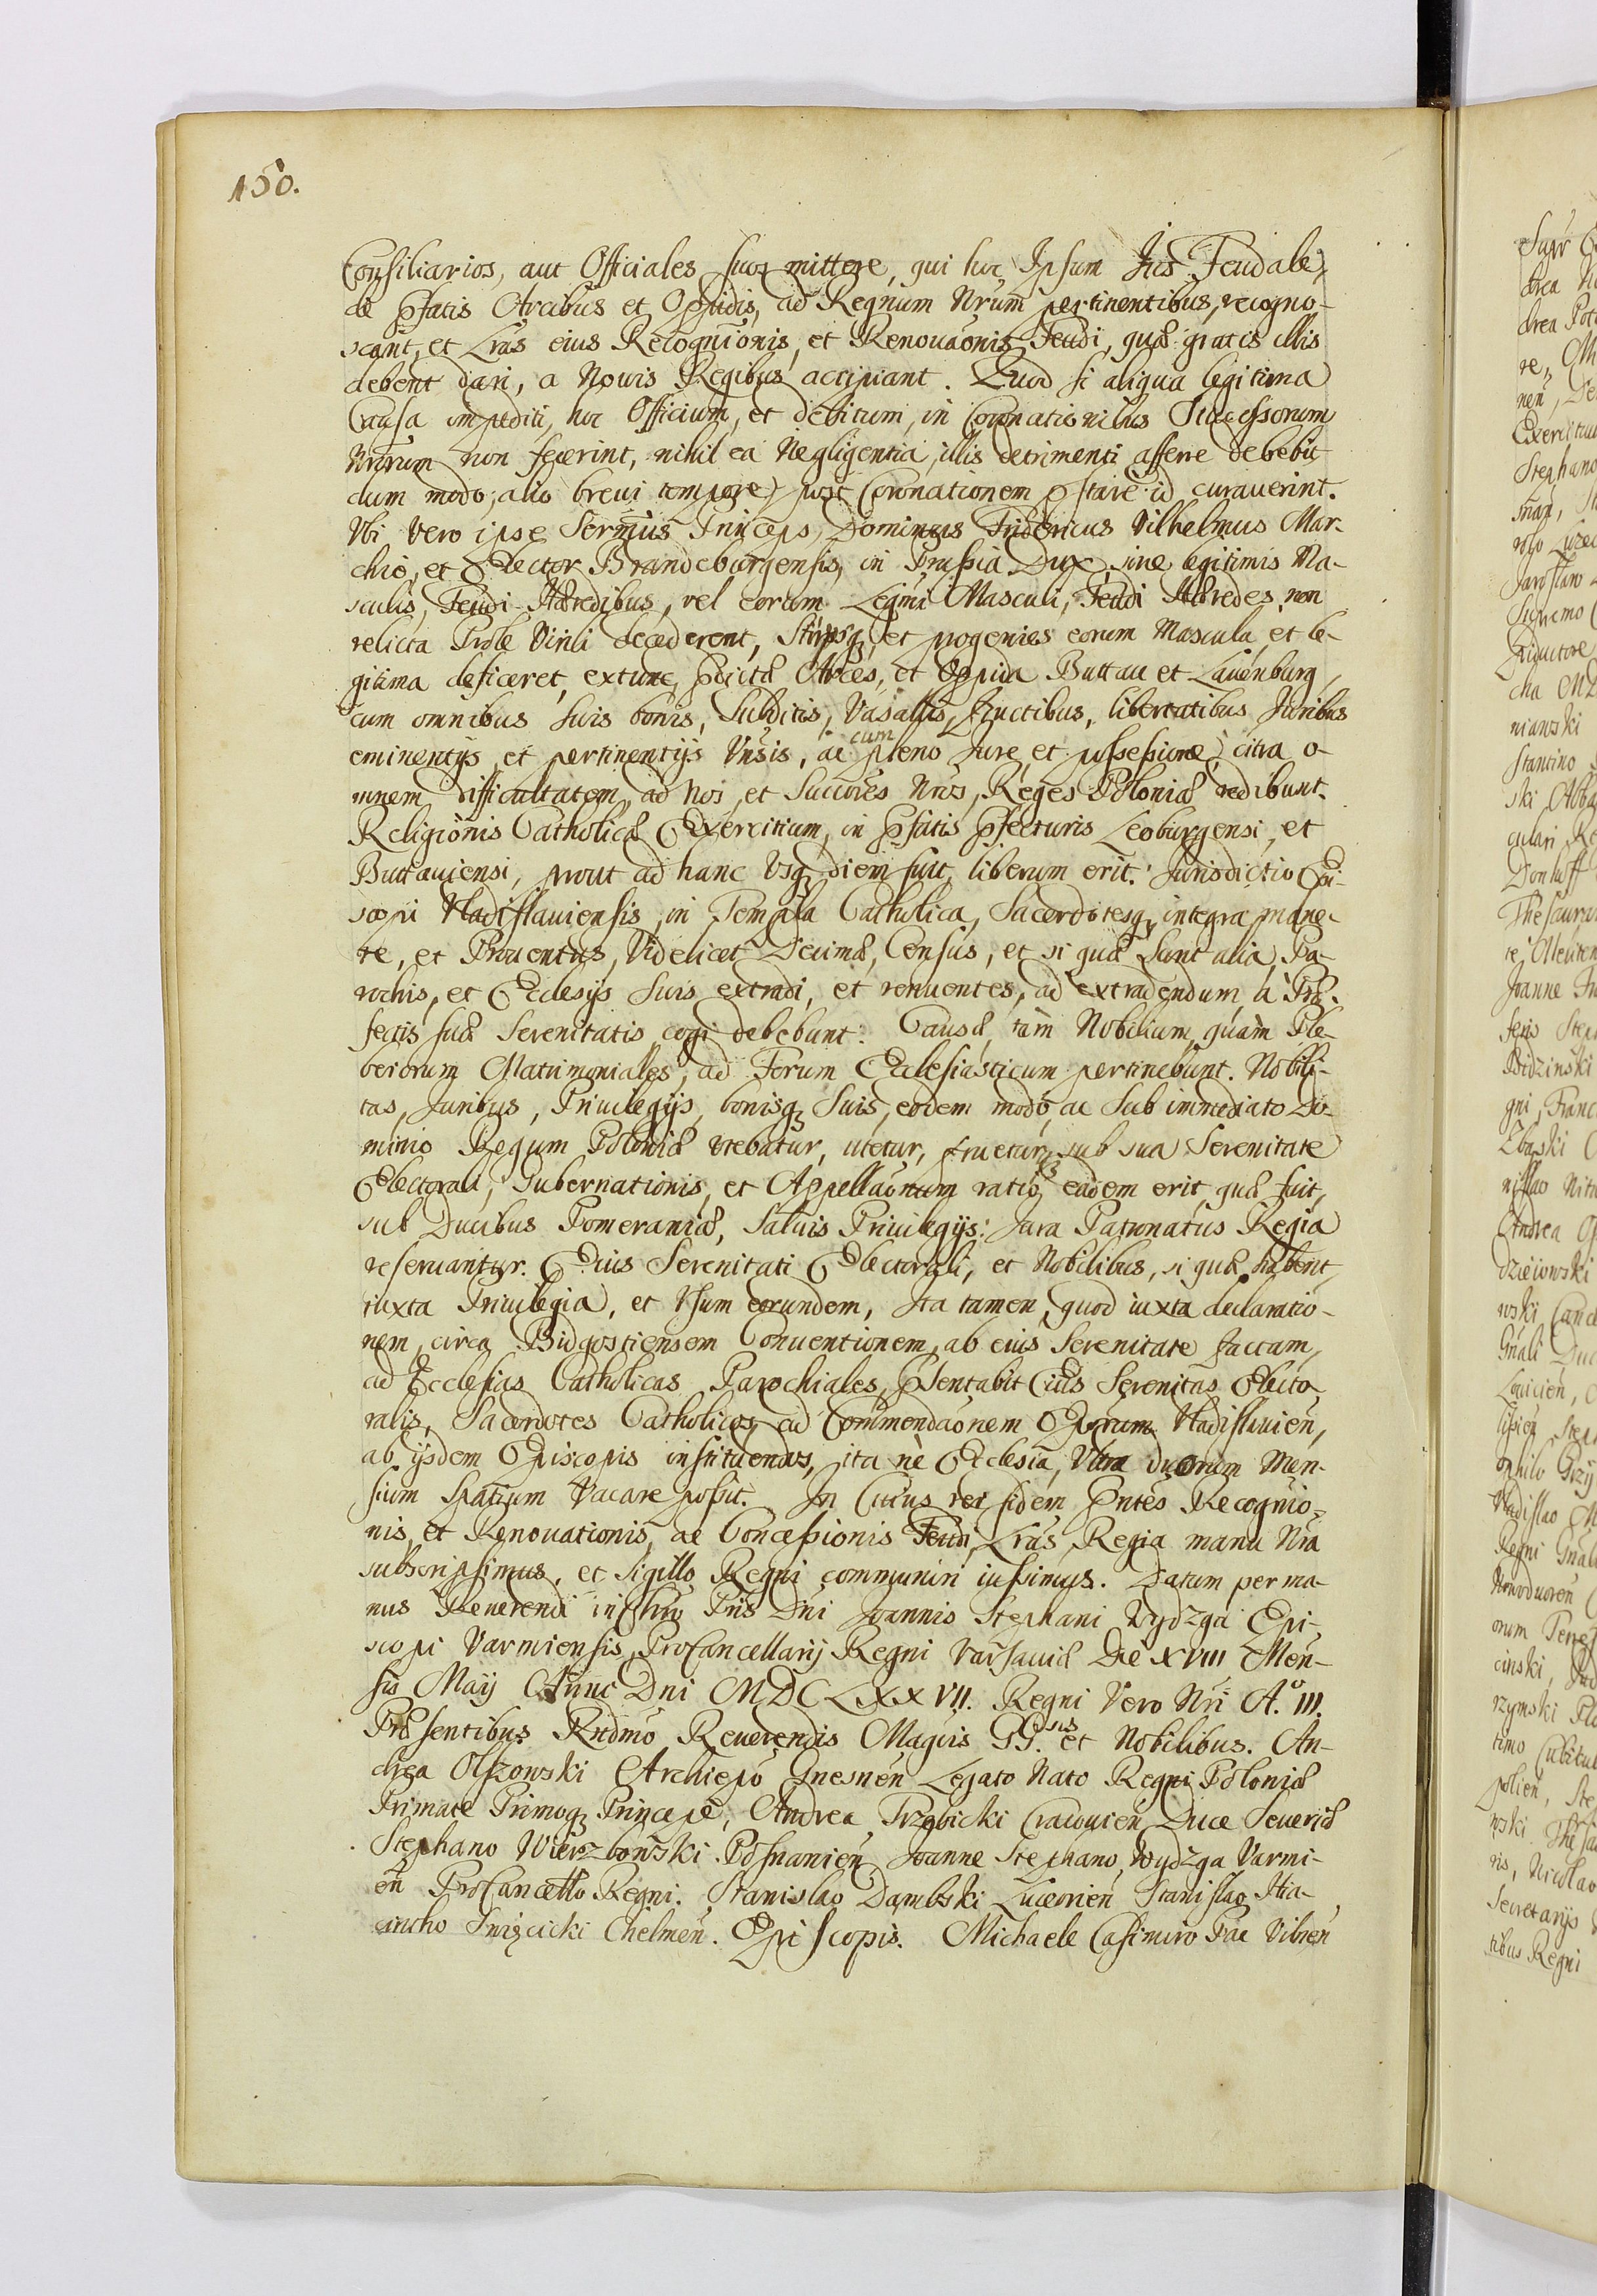 150.
Consiliarios, aut Officiales suos mittere, qui hoc Ipsum Jus Feudale,
de p̄fatis Arcibus et Oppidis, ad Regnum Nrum̄ pertinentibus, recogno-
scant, et Lrās eius Recognitōnis, et Renouaōnis Feudi, quæ gratis illis
debent dari, a Nowis Regibus accipiant. Quod si aliqua legitima
Causa impediti, hoc Officium, et debitum, in Coronationibus Successorum
Nrōrum non fecerint, nihil ea Negligentia, illis detrimenti afferre debebit
dum modo, alio breui tempore, post Coronationem p̄stare id curauerint.
Vbi vero ipse Serm̄us Princeps, Dominus Fridericus Vilhelmus Mar-
chio, et Elector Brandeburgensis, in Prussia Dux, sine legitimis Ma-
sculis, Feudi Hæredibus, vel eorum Legm̄i Masculi, Feudi Hæredes, non
relicta Prole Virili decederent, Stirpsq, et progenies eorum Mascula, et le-
gitima deficeret, extunc, p̄dictæ Arces, et Oppida Buttau et Lauenburg,
cum omnibus suis bonis, Subditis, Vasallis, fructibus, libertatibus Juribus
eminentijs, et pertinentijs Vnsis, ac cum pleno Jure, et possessione, citra o-
mnem difficultatem, ad Nos, et Succōres Nrōs, Reges Poloniæ redibunt.
Religionis Catholicæ Exercitium, in p̄fatis p̄fecturis Leoburgensi, et
Buttauiensi, prout ad hanc Vsq diem fuit, liberum erit. Jurisdictio Epi-
scopi Vladislauiensis, in Templa Catholica, Sacerdotesq, integra mane-
re, et Prouentus, Videlicet Decimæ, Census, et si quæ sunt alia, Pa-
rochis, et Ecclesijs suis extradi, et renuentes, ad extradendum à Præ-
fectis suæ Serenitatis cogi debebunt. Causæ, tàm Nobilium, quàm Ple-
beiorum Matrimoniales, ad Forum Ecclesiasticum pertinebunt. Nobili-
tas, Juribus, Priuilegijs, bonisq suis, eodem modo, ac sub immediato Do-
minio Regum Poloniæ vtebatur, utetur, frueturq sub sua Serenitate
Electorali, Gubernationis, et Appellaōnum ratio, eadem erit, quæ fuit,
sub Ducibus Pomeraniæ, Saluis Priuilegijs: Jura Patronatus Regia
reseruantur. Eius Serenitati Electorali, et Nobilibus, si quæ habent,
iuxta Priuilegia, et Vsum eorundem, Ita tamen, quod iuxta declaratio-
nem, circa Bidgostiensem Conuentionem, ab eius Serenitate factam,
ad Ecclesias Catholicas Parochiales, p̄sentabit Eius Serenitas Electo-
ralis, Sacerdotes Catholicos, ad Commendaōnem Eporum Vladislauien̄,
ab ijsdem Episcopis instituendos, ita nè Ecclesia, Vltra duorum Men-
sium spatium Vacare possit. In Cuius rei fidem p̄ntes Recognitio-
nis, et Renouationis, ac Concessionis Feudi, Lrās, Regia manu Nra
subscripsimus, et Sigillo Regni communiri iussimus. Datum per ma-
nus Reuerendi in Chro Pris Dni Joannis Stephani Wydzga Epi-
scopi Varmiensis, ProCancellarij Regni Varsauiæ Die XVIII Men-
sis Maij Anno Dni MDCLXXVII. Regni Vero Nri A.º III.
Præsentibus Rndmo Reuerendis Magcis GG.sis et Nobilibus. An-
drea Olszowski Archiepo Gnesnen̄ Legato Nato Regni Poloniæ
Primate Primoq Principe, Andrea Trzebicki Cracouien̄ Duce Seueriæ
Stephano Wierzbowski Posnanien̄, Joanne Stephano Wydzga Varmi-
en̄ ProCancello Regni. Stanislao Dąmbski Luceorien̄ Stanislao Hia-
cintho Swięcicki Chelmen̄. Episcopis. Michaele Casimiro Pac Vilnen̄